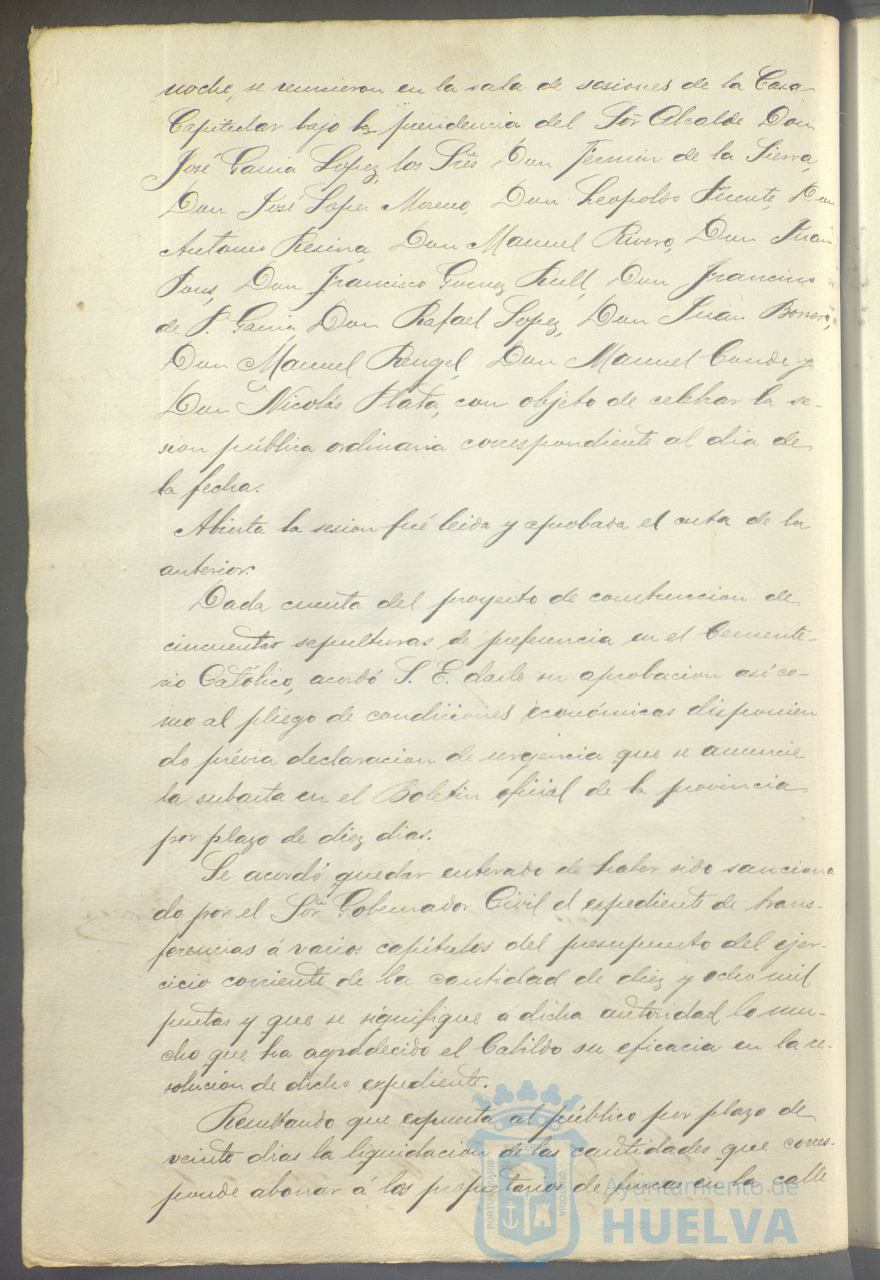 noche, se reunieron en la sala de sesiones de la Casa
Capitular bajo la presidencia del Sor. Alcalde Don
José Garcia Lopez, los Sres. Don Fermin de la Sierra,
Don José Lopez Moreno, Don Leopoldo Fuente, Don
Antonio Resina, Don Manuel Rivero, Don Juan
Pons, Don Francisco Gomez Rull, Don Francisco
de P. Garcia, Don Rafael Lopez, Don Juan Borrero,
Don Manuel Rengel, Don Manuel Conde y
Don Nicolás Plata, con objeto de celebrar la se-
sion pública ordinaria correspondiente al dia de
la fecha.
Abierta la sesion fué leida y aprobada el acta de la
anterior.
Dada cuenta del proyecto de construccion de
cincuenta sepulturas de preferencia en el Cemente-
rio Católico, acordó S. E. darle su aprobacion asi co-
mo al pliego de condiciones económicas disponien
do prévia declaracion de urgencia que se anuncie
la subasta en el Boletin oficial de la provincia
por plazo de diez dias.
Se acordó quedar enterado de haber sido sanciona
do por el Sor. Gobernador Civil el expediente de trans-
ferencias á varios capítulos del presupuesto del ejer-
cicio corriente de la cantidad de diez y ocho mil
pesetas y que se signifique a dicha autoridad lo mu-
cho que ha agradecido el Cabildo su eficacia en la re-
solucion de dicho expediente.
Resultando que expuesta al público por plazo de
veinte dias la liquidacion de las cantidades que corres-
ponde abonar á los propietarios de fincas en la calle
Ayuntamiento de
HUELVA